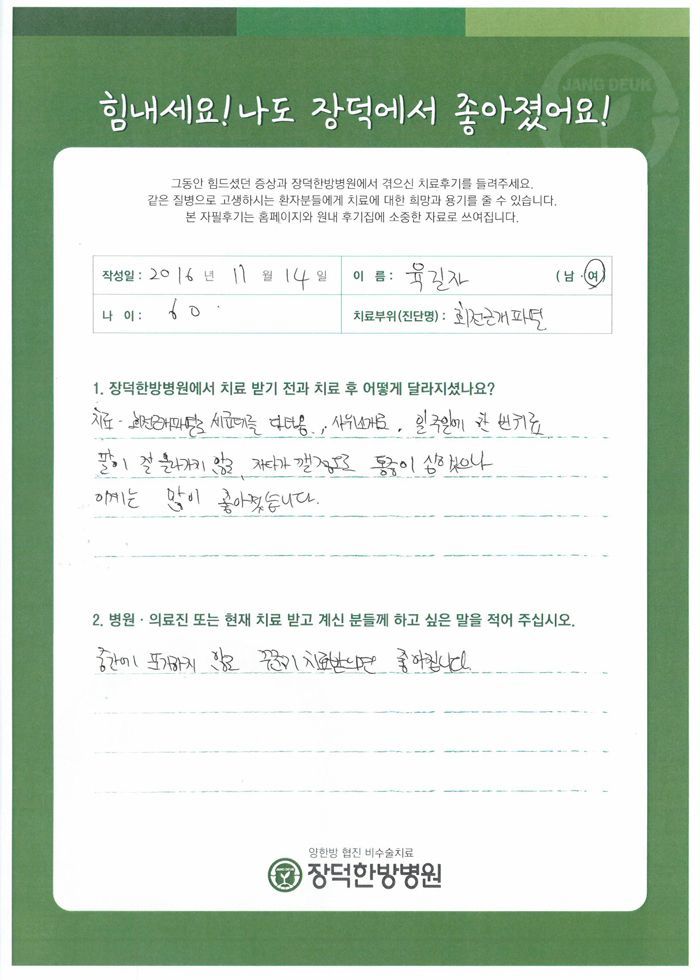 JANG DEUK
힘내세요! 나도 장덕에서 좋아졌어요!
그동안 힘드셨던 증상과 장덕한방병원에서 겪으신 치료후기를 들려주세요.
같은 질병으로 고생하시는 환자분들에게 치료에 대한 희망과 용기를 줄 수 있습니다.
본 자필후기는 홈페이지와 원내 후기집에 소중한 자료로 쓰여집니다.
작성일 : 2016 년 11 월 14 일 이 름 : 육길자 (남 · 여)
나 이 : 60 치료부위(진단명) : 회전근개파열
1. 장덕한방병원에서 치료 받기 전과 치료 후 어떻게 달라지셨나요?
치료 - 회전근개파열로 세군데를 다녀옴, 사위소개로, 일주일에 한 번 치료
팔이 잘 올라가지 않고, 자다가 깰정도로 통증이 심하였으나
이제는 많이 좋아졌습니다.
2. 병원 · 의료진 또는 현재 치료 받고 계신 분들께 하고 싶은 말을 적어 주십시오.
중간에 포기하지 않고 꾸준히 치료받으면 좋아집니다.
양한방 협진 비수술치료
장덕한방병원